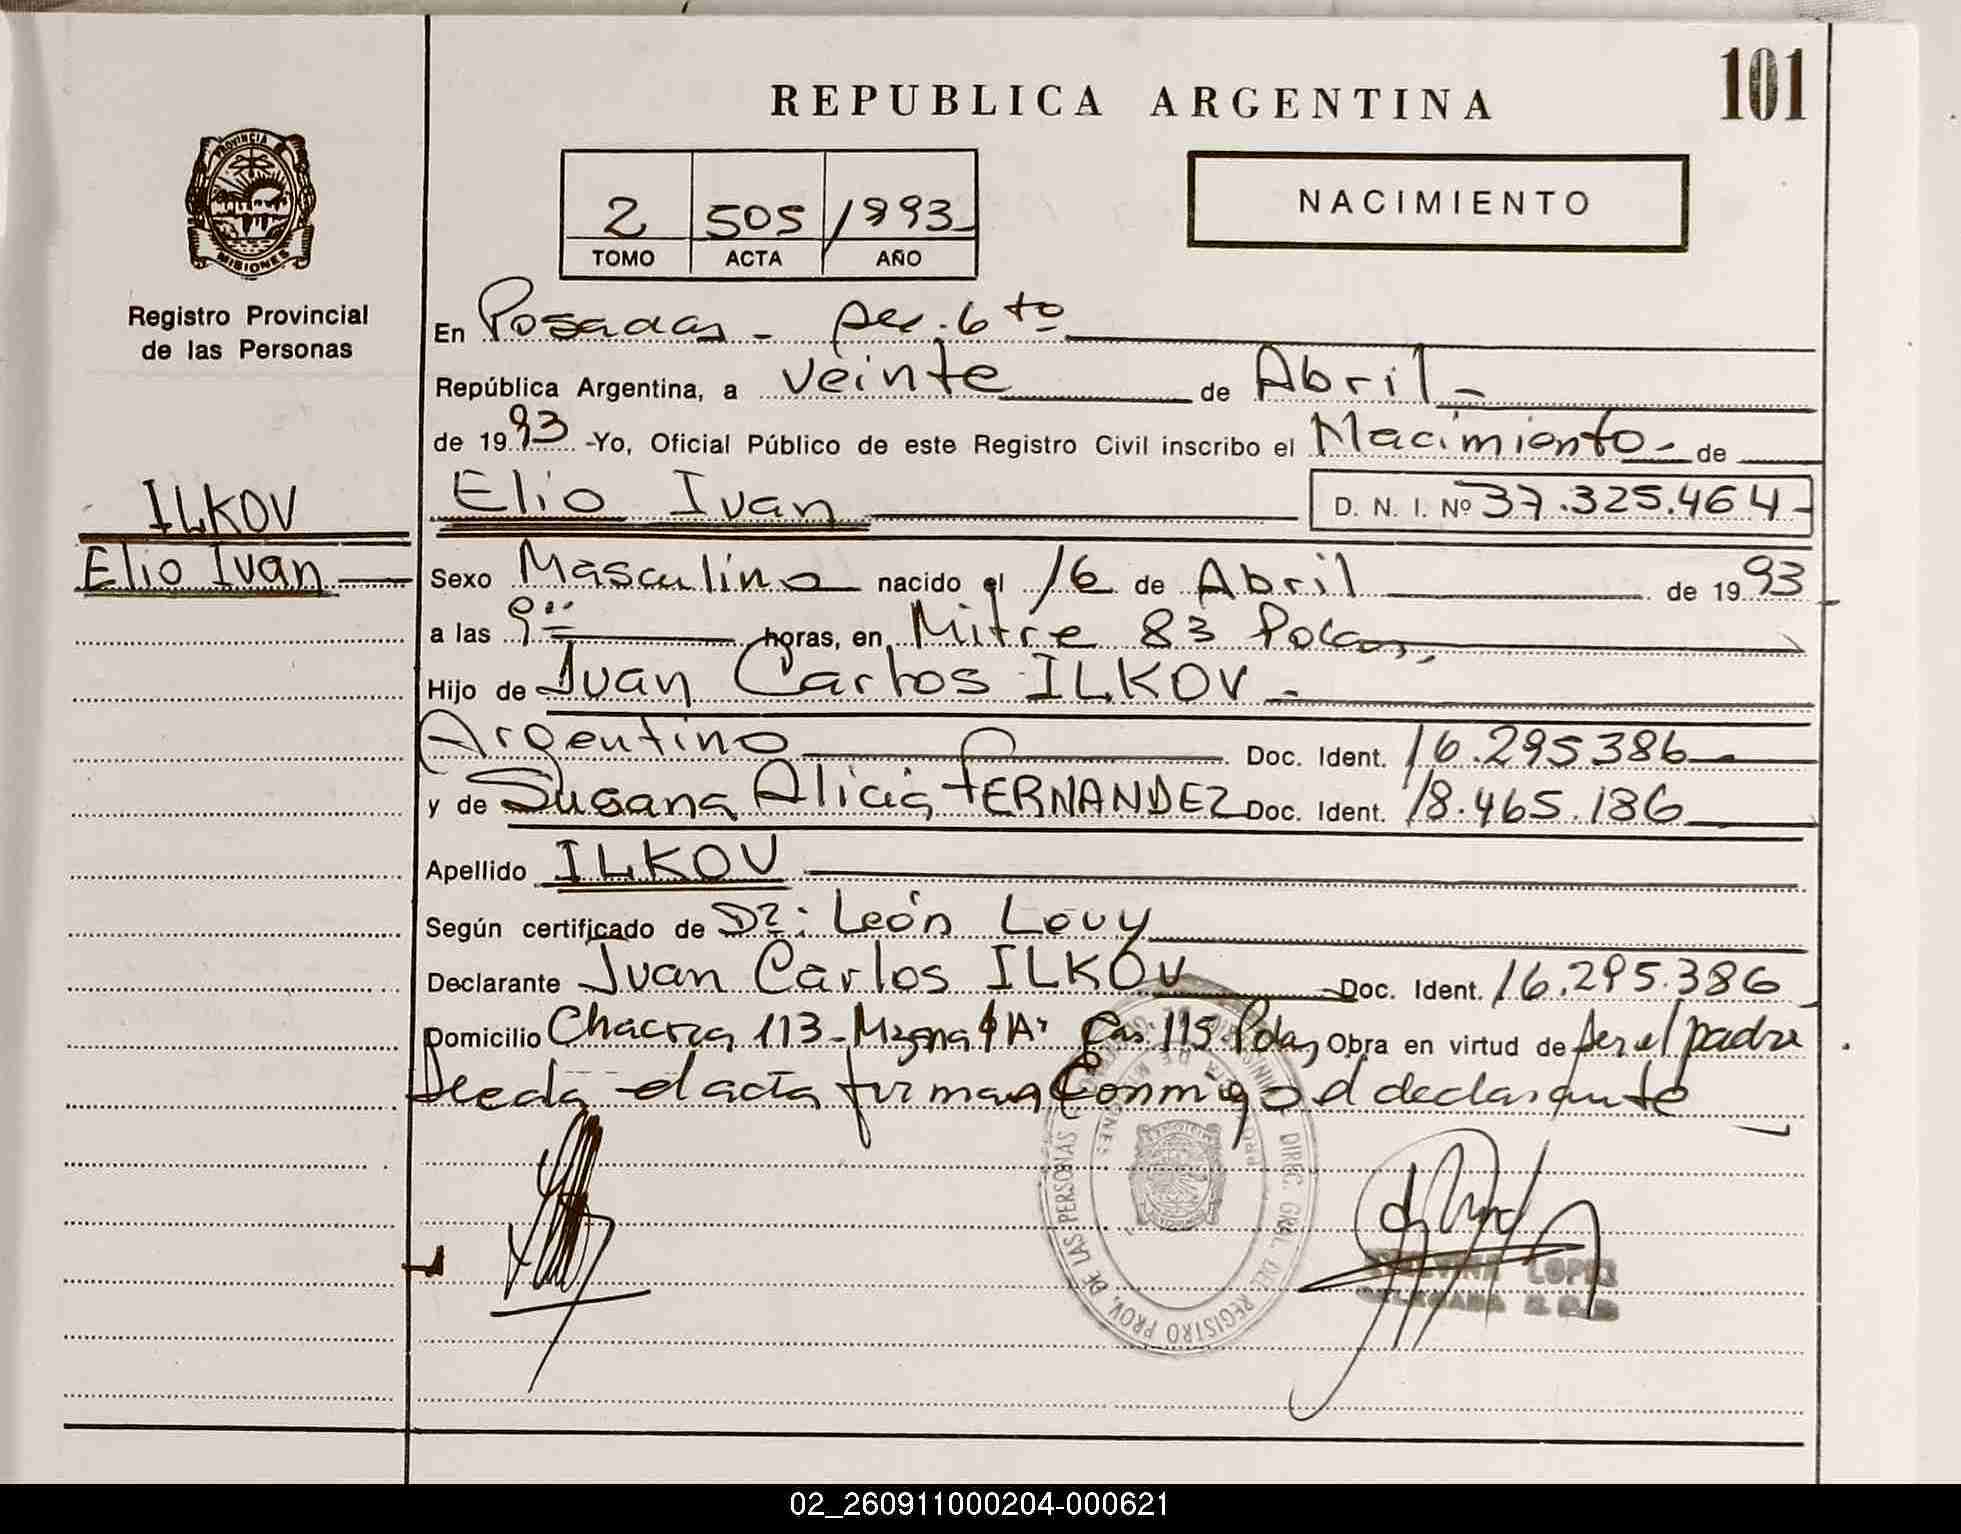 101
REPUBLICA ARGENTINA
PROVINCIA
MISIONES
Registro Provincial
de las Personas
2 505 1993
TOMO ACTA AÑO
NACIMIENTO
En Posadas - sec. 6to
República Argentina, a veinte de Abril -
de 1993 -Yo, Oficial Público de este Registro Civil inscribo el Nacimiento - de
ILKOV
Elio Ivan
Elio Ivan D. N. I. Nº 37.325.464-
Sexo Masculino nacido el 16 de Abril de 1993
a las 9 horas, en Mitre 83 Pdas,
Hijo de Juan Carlos ILKOV -
Argentino Doc. Ident. 16.295386
y de Susana Alicia FERNANDEZ Doc. Ident. 18.465.186
Apellido ILKOV
Según certificado de Dr: León Levy
Declarante Juan Carlos ILKOV Doc. Ident. 16.295.386
Domicilio Chacra 113- Mzna Cas 115 Pdas Obra en virtud de ser el padre
Leeda el acta firman Conmigo el declarante
DIREC. GRAL. DEL REGISTRO PROV. DE LAS PERSONAS
LOPEZ
02_260911000204-000621